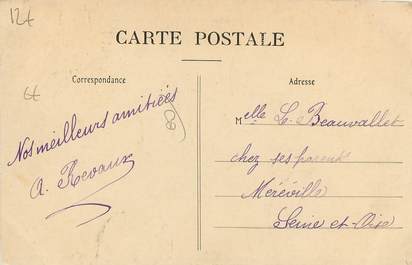 12t
CARTE POSTALE
Correspondance
Adresse
Nos meilleurs amitiées
A. Revaux
Melle L. Beauvallet
chez ses parents
Méréville
Seine et Oise